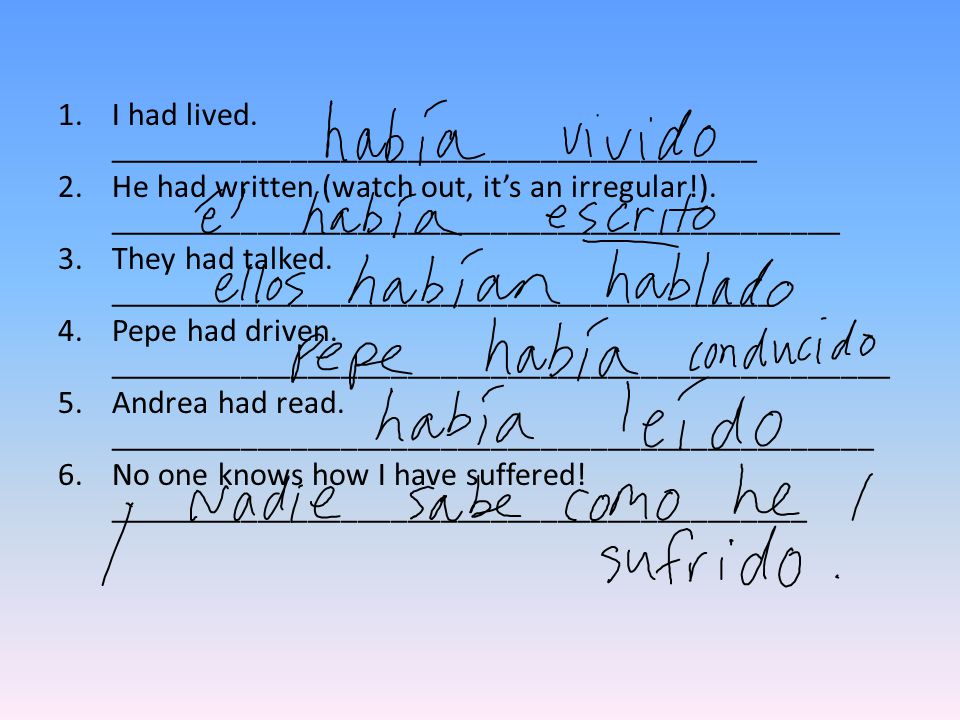 1. I had lived.
había vivido
2. He had written (watch out, it's an irregular!).
él había escrito
3. They had talked.
ellos habían hablado
4. Pepe had driven.
Pepe había conducido
5. Andrea had read.
había leído
6. No one knows how I have suffered!
¡Nadie sabe como he
sufrido.!